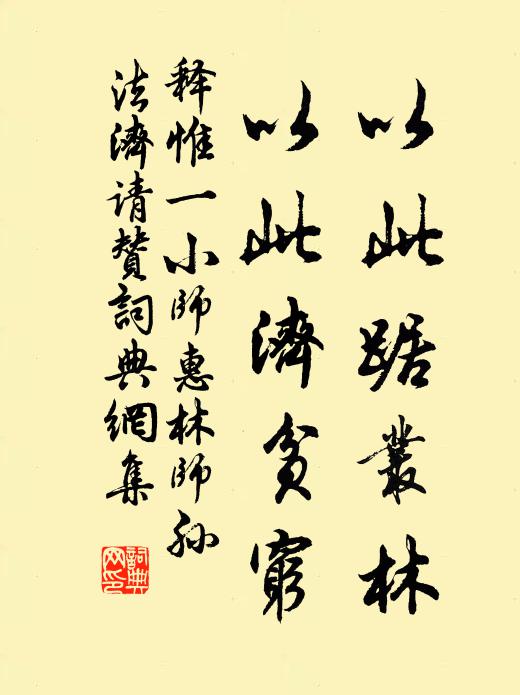 以此踞叢林
以此濟貧窮
释惟一小師惠林師孫
法濟请贊詞典網集
詞典网印